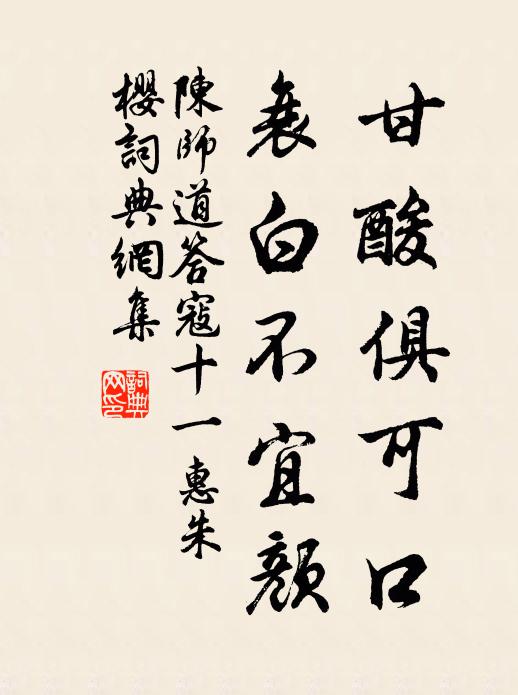 甘酸俱可口
衰白不宜顏
陳師道答寇十一 惠朱
櫻詞典網集
詞典
网印